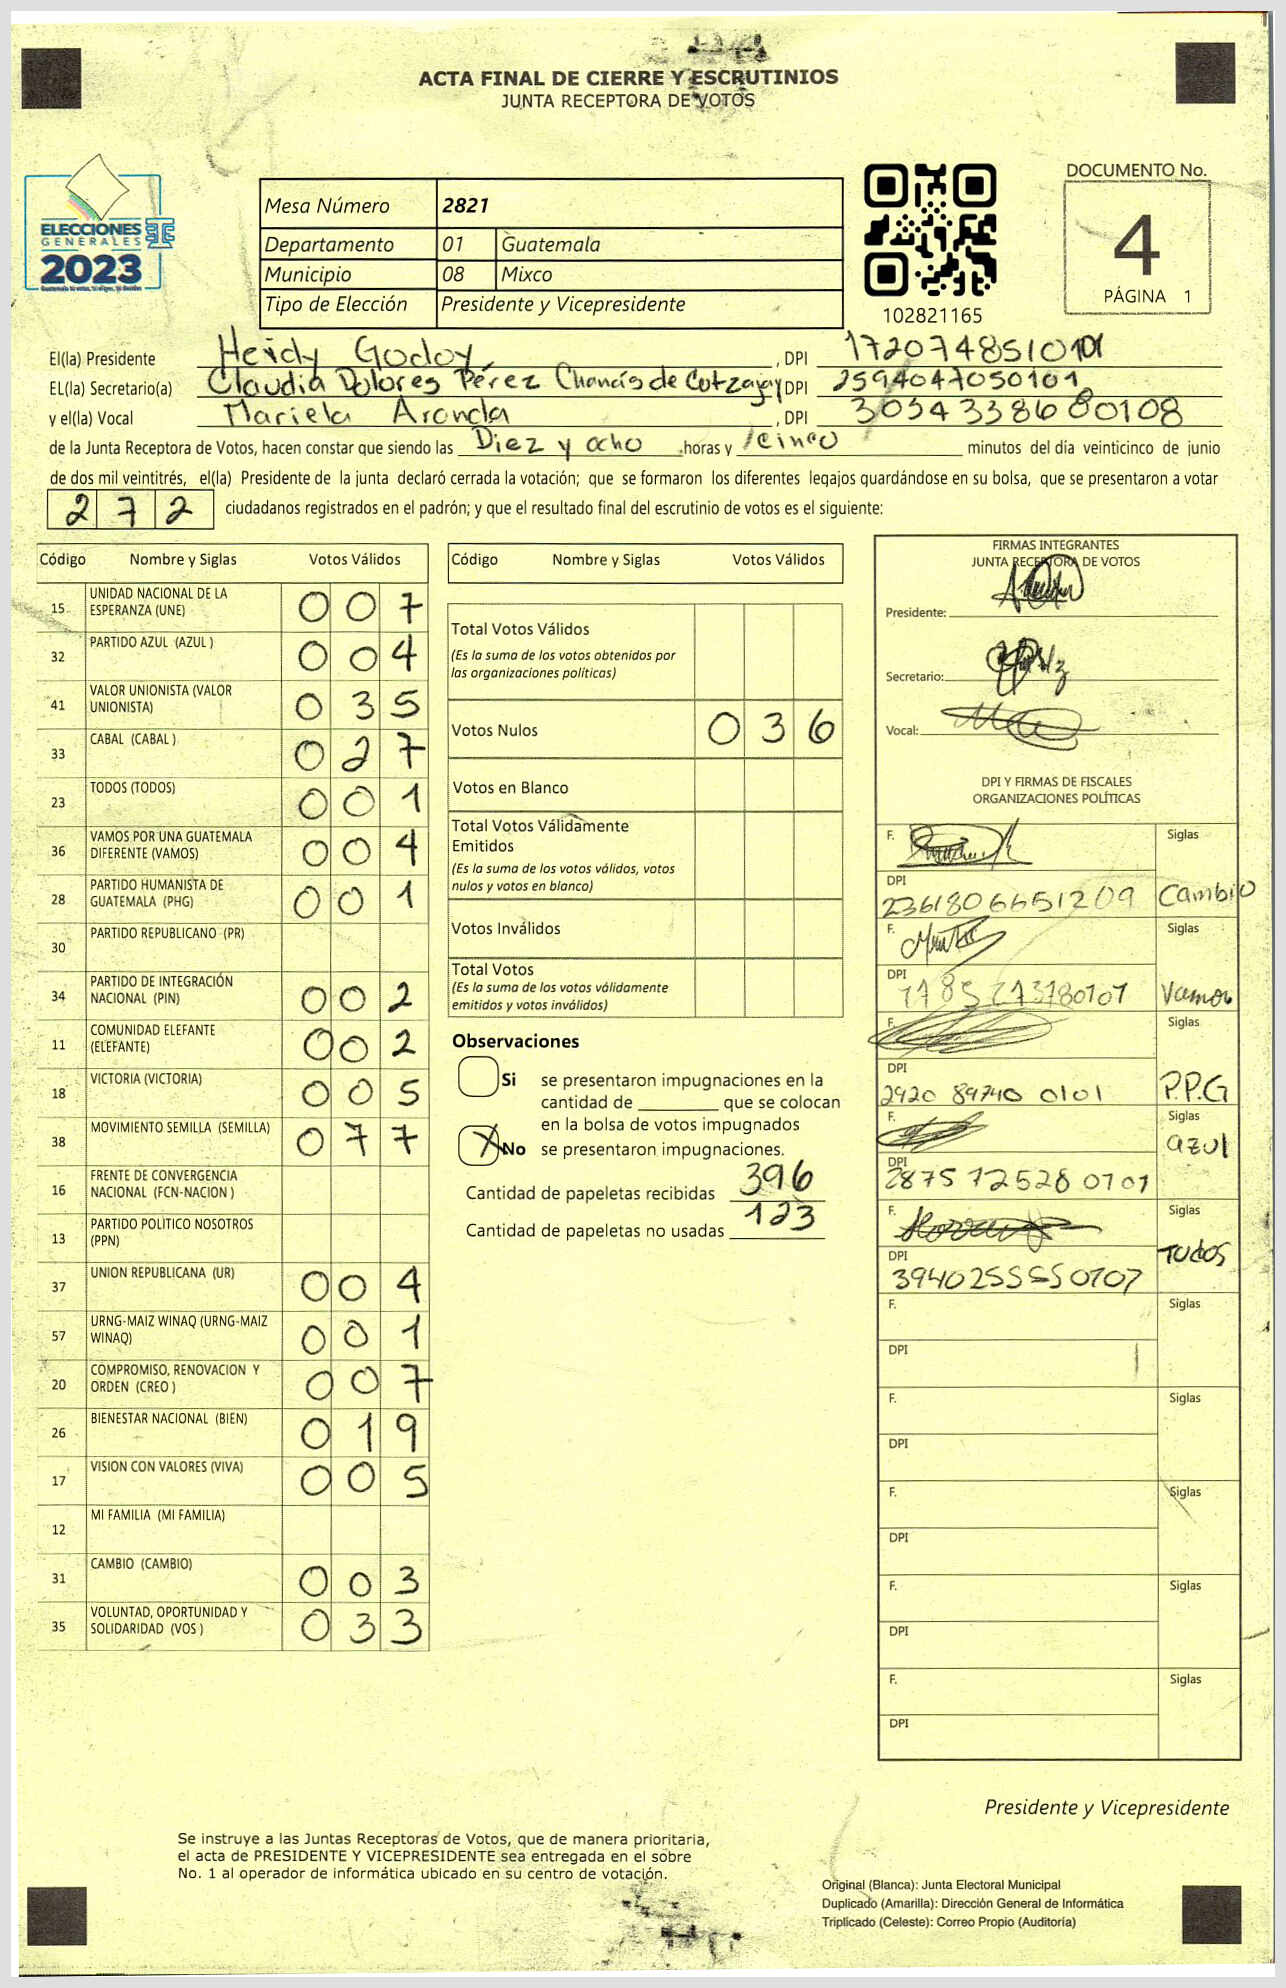 ACTA FINAL DE CIERRE Y ESCRUTINIOS
JUNTA RECEPTORA DE VOTOS
ELECCIONES
GENERALES
2023
Mesa Número 2821
Departamento 01 Guatemala
Municipio 08 Mixco
Tipo de Elección Presidente y Vicepresidente
102821165
DOCUMENTO No.
4
PÁGINA 1
El(la) Presidente Heidy Godoy, DPI 1720748510101
EL(la) Secretario(a) Claudia Dolores Pérez Chancís de Cotzajay DPI 2594047050101
y el(la) Vocal Mariela Aronda, DPI
de la Junta Receptora de Votos, hacen constar que siendo las Diez y ocho horas y cinco minutos del día veinticinco de junio
de dos mil veintitrés, el(la) Presidente de la junta declaró cerrada la votación; que se formaron los diferentes legajos guardándose en su bolsa, que se presentaron a votar
272 ciudadanos registrados en el padrón; y que el resultado final del escrutinio de votos es el siguiente:
Código Nombre y Siglas Votos Válidos
15 UNIDAD NACIONAL DE LA ESPERANZA (UNE) 007
32 PARTIDO AZUL (AZUL ) 004
41 VALOR UNIONISTA (VALOR UNIONISTA) 035
33 CABAL (CABAL ) 027
23 TODOS (TODOS) 001
36 VAMOS POR UNA GUATEMALA DIFERENTE (VAMOS) 004
28 PARTIDO HUMANISTA DE GUATEMALA (PHG) 001
30 PARTIDO REPUBLICANO (PR)
34 PARTIDO DE INTEGRACIÓN NACIONAL (PIN) 002
11 COMUNIDAD ELEFANTE (ELEFANTE) 002
18 VICTORIA (VICTORIA) 005
38 MOVIMIENTO SEMILLA (SEMILLA) 077
16 FRENTE DE CONVERGENCIA NACIONAL (FCN-NACION )
13 PARTIDO POLITICO NOSOTROS (PPN)
37 UNION REPUBLICANA (UR) 004
57 URNG-MAIZ WINAQ (URNG-MAIZ WINAQ) 001
20 COMPROMISO, RENOVACION Y ORDEN (CREO ) 007
26 BIENESTAR NACIONAL (BIEN) 019
17 VISION CON VALORES (VIVA) 005
12 MI FAMILIA (MI FAMILIA)
31 CAMBIO (CAMBIO) 003
35 VOLUNTAD, OPORTUNIDAD Y SOLIDARIDAD (VOS ) 033
Código Nombre y Siglas Votos Válidos
Total Votos Válidos
(Es la suma de los votos obtenidos por
las organizaciones políticas)
Votos Nulos 036
Votos en Blanco
Total Votos Válidamente
Emitidos
(Es la suma de los votos válidos, votos
nulos y votos en blanco)
Votos Inválidos
Total Votos
(Es la suma de los votos válidamente
emitidos y votos inválidos)
Observaciones
Si se presentaron impugnaciones en la
cantidad de ________ que se colocan
en la bolsa de votos impugnados
X No se presentaron impugnaciones.
Cantidad de papeletas recibidas 396
Cantidad de papeletas no usadas 123
FIRMAS INTEGRANTES
JUNTA RECEPTORA DE VOTOS
Presidente:
Secretario:
Vocal:
DPI Y FIRMAS DE FISCALES
ORGANIZACIONES POLÍTICAS
F. Siglas
DPI 2361806651209 Cambio
F. Siglas
DPI Vamos
F. Siglas
DPI 2920 89740 0101 P.P.G
F. Siglas
DPI 2875 12528 0101 azul
F. Siglas
DPI Todos
F. Siglas
DPI
F. Siglas
DPI
F. Siglas
DPI
F. Siglas
DPI
F. Siglas
DPI
Presidente y Vicepresidente
Se instruye a las Juntas Receptoras de Votos, que de manera prioritaria,
el acta de PRESIDENTE Y VICEPRESIDENTE sea entregada en el sobre
No. 1 al operador de informática ubicado en su centro de votación.
Original (Blanca): Junta Electoral Municipal
Duplicado (Amarilla): Dirección General de Informática
Triplicado (Celeste): Correo Propio (Auditoría)